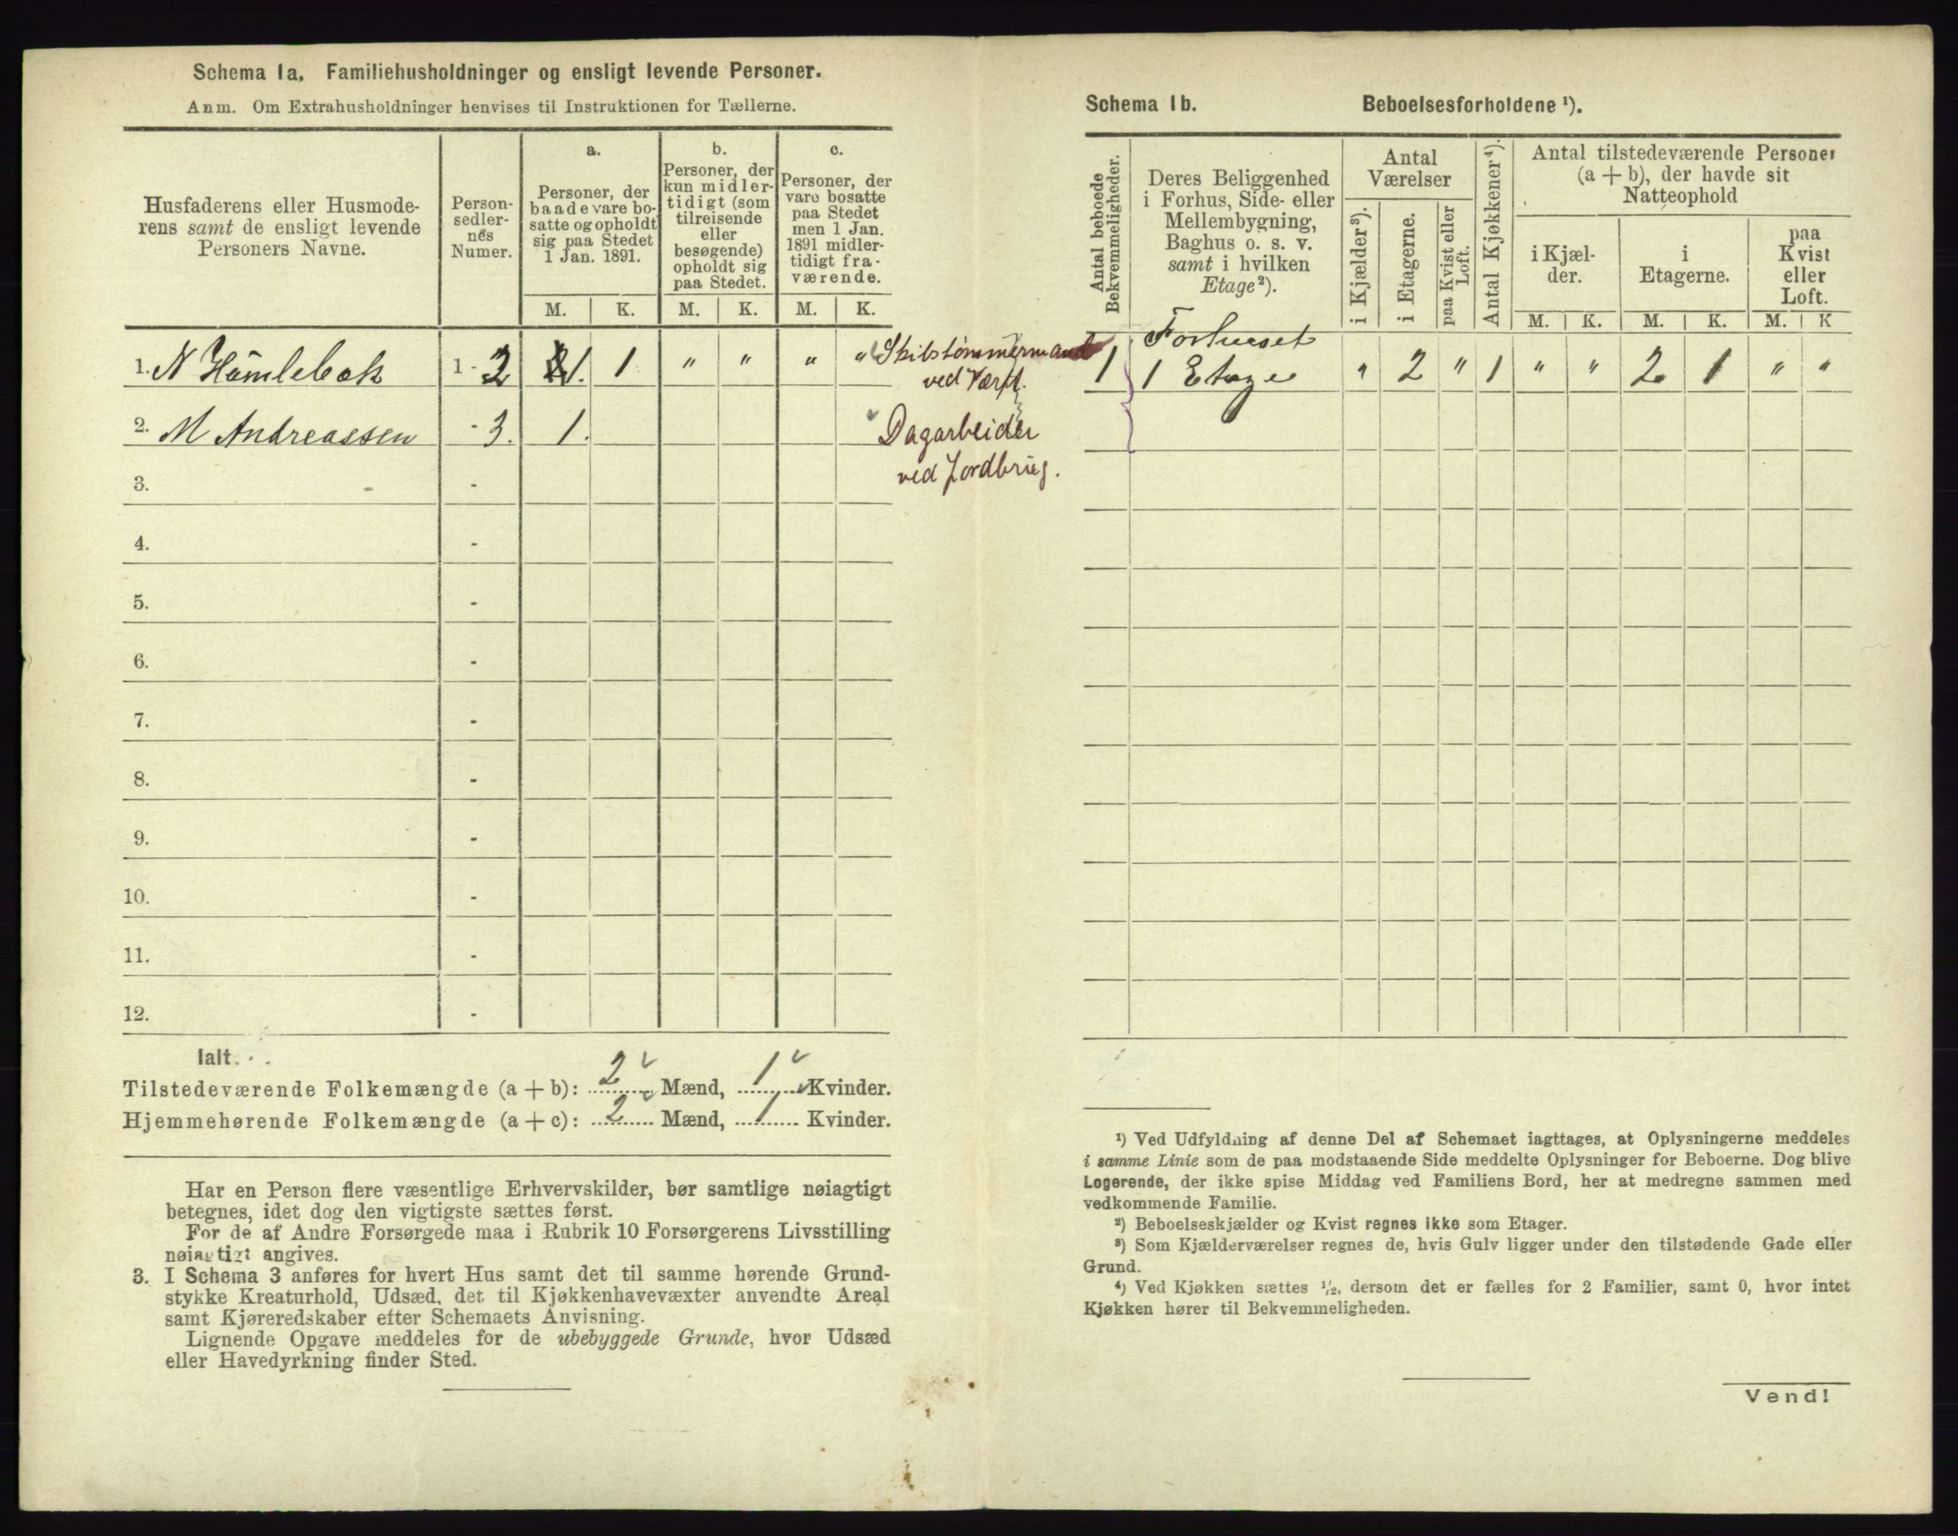 Schema 1a. Familiehusholdninger og ensligt levende Personer.
Anm. Om Extrahusholdninger henvises til Instruktionen for Tællerne.
Husfaderens eller Husmode-
rens samt de ensligt levende
Personers Navne.
Person-
sedler-
nes
Numer.
a.
Personer, der
baade vare bo-
satte og opholdt
sig paa Stedet
1 Jan. 1891.
b.
Personer, der
kun midler-
tidigt (som
tilreisende
eller
besøgende)
opholdt sig
paa Stedet.
c.
Personer, der
vare bosatte
paa Stedet
men 1 Jan.
1891 midler-
tidigt fra-
værende.
M. K. M. K. M. K.
1. N Hamlebak 1-2 1. 1 " " " " Skibstømmermand
ved Værft.
2. M Andreassen - 3. 1. Dagarbeider
ved Jordbrug.
3. -
4. -
5. -
6. -
7. -
8. -
9. -
10. -
11. -
12. -
Ialt.
Tilstedeværende Folkemængde (a + b): 2 Mænd, 1 Kvinder.
Hjemmehørende Folkemængde (a + c): 2 Mænd, 1 Kvinder.
Har en Person flere væsentlige Erhvervskilder, bør samtlige nøiagtigt
betegnes, idet dog den vigtigste sættes først.
For de af Andre Forsørgede maa i Rubrik 10 Forsørgerens Livsstilling
nøiagtigt angives.
3. I Schema 3 anføres for hvert Hus samt det til samme hørende Grund-
stykke Kreaturhold, Udsæd, det til Kjøkkenhavevæxter anvendte Areal
samt Kjøreredskaber efter Schemaets Anvisning.
Lignende Opgave meddeles for de ubebyggede Grunde, hvor Udsæd
eller Havedyrkning finder Sted.
Schema 1b. Beboelsesforholdene ¹).
Antal beboede
Bekvemmeligheder.
Deres Beliggenhed
i Forhus, Side- eller
Mellembygning,
Baghus o. s. v.
samt i hvilken
Etage²).
Antal
Værelser
i Kjælder³).
i Etagerne.
paa Kvist eller
Loft.
Antal Kjøkkener⁴).
Antal tilstedeværende Personer
(a + b), der havde sit
Natteophold
i Kjæl-
der.
i
Etagerne.
paa
Kvist
eller
Loft.
M. K. M. K. M. K
Forhuset
1 1 Etage " 2 " 1 " " 2 1 " "
¹) Ved Udfyldning af denne Del af Schemaet iagttages, at Oplysningerne meddeles
i samme Linie som de paa modstaaende Side meddelte Oplysninger for Beboerne. Dog blive
Logerende, der ikke spise Middag ved Familiens Bord, her at medregne sammen med
vedkommende Familie.
²) Beboelseskjælder og Kvist regnes ikke som Etager.
³) Som Kjælderværelser regnes de, hvis Gulv ligger under den tilstødende Gade eller
Grund.
⁴) Ved Kjøkken sættes ¹/₂, dersom det er fælles for 2 Familier, samt 0, hvor intet
Kjøkken hører til Bekvemmeligheden.
Vend!